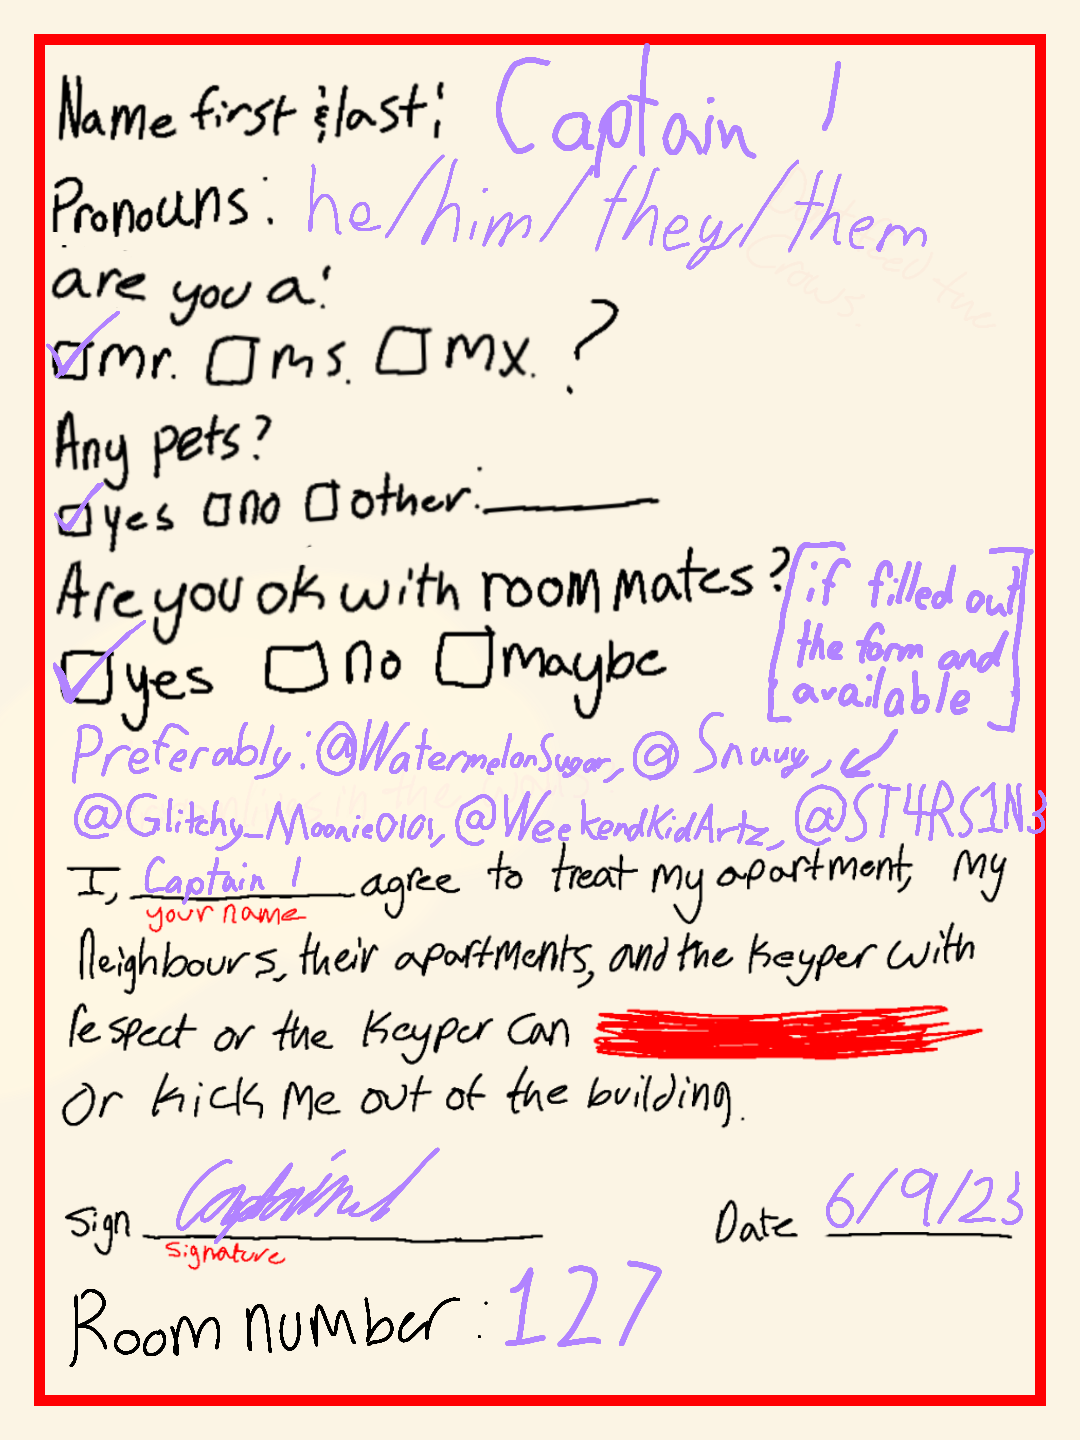 Name first & last: Captain 1
Pronouns: he/him/they/them
are you a:
mr. ms. mx. ?
Any pets?
yes no other:______
Are you ok with roommates?
yes no maybe
[if filled out
the form and
available]
Preferably: @WatermelonSugar, @Snuuy,
@Glitchy_Moonie0101, @WeekendKidArtz, @ST4RS1N3
I, Captain 1 agree to treat my apartment, my
your name
Neighbours, their apartments, and the Keyper with
respect or the Keyper can
or kick me out of the building.
Sign Captain 1 Date 6/9/23
signature
Room number: 127